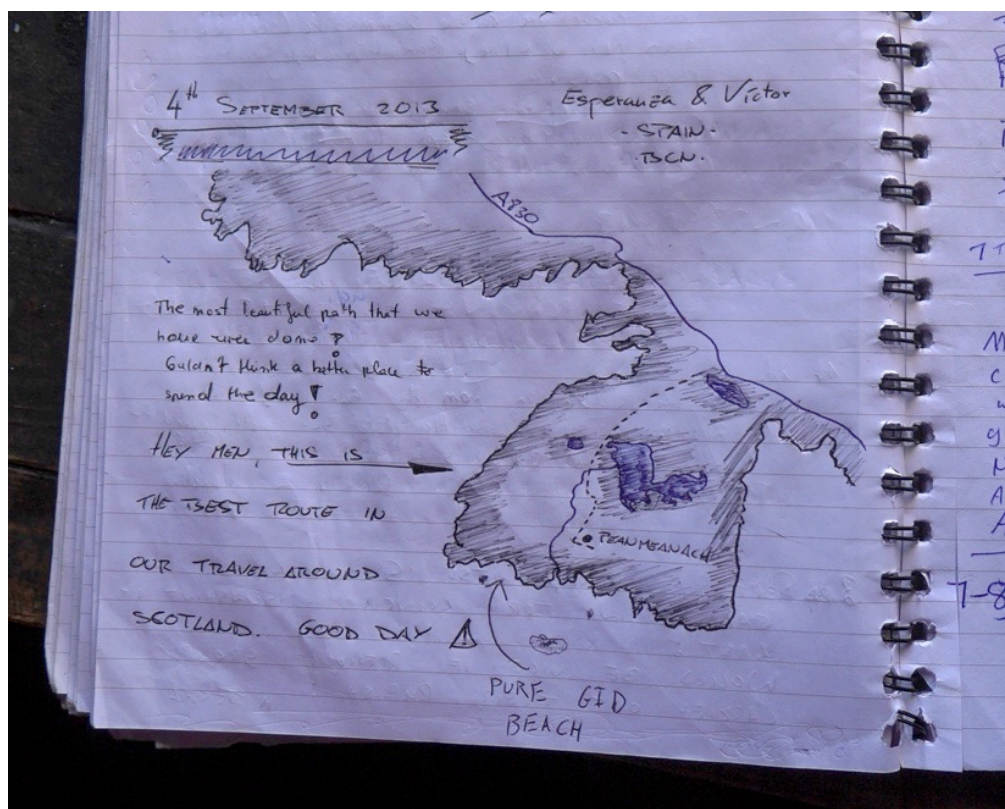 4th SEPTEMBER 2013
Esperanza & Víctor
- SPAIN -
- BCN -
A830
The most beautiful path that we
have ever done!
Culdn't think a better place to
spend the day!
HEY MEN, THIS IS
THE BEST ROUTE IN
OUR TRAVEL AROUND
SCOTLAND. GOOD DAY
PEANMEANACH
PURE GID
BEACH
7-8